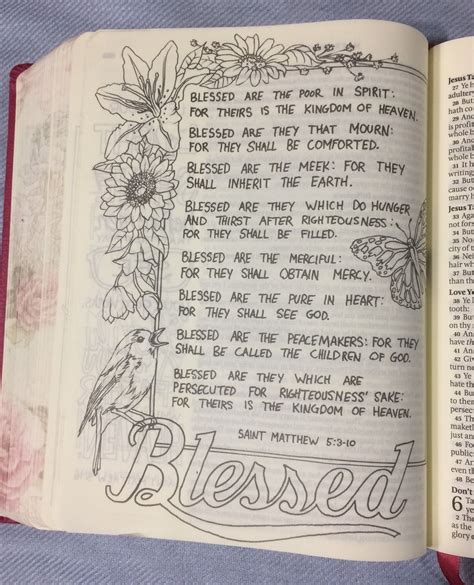 BLESSED ARE THE POOR IN SPIRIT:
FOR THEIRS IS THE KINGDOM OF HEAVEN.
BLESSED ARE THEY THAT MOURN:
FOR THEY SHALL BE COMFORTED.
BLESSED ARE THE MEEK: FOR THEY
SHALL INHERIT THE EARTH.
BLESSED ARE THEY WHICH DO HUNGER
AND THIRST AFTER RIGHTEOUSNESS:
FOR THEY SHALL BE FILLED.
BLESSED ARE THE MERCIFUL:
FOR THEY SHALL OBTAIN MERCY.
BLESSED ARE THE PURE IN HEART:
FOR THEY SHALL SEE GOD.
BLESSED ARE THE PEACEMAKERS: FOR THEY
SHALL BE CALLED THE CHILDREN OF GOD.
BLESSED ARE THEY WHICH ARE
PERSECUTED FOR RIGHTEOUSNESS' SAKE:
FOR THEIRS IS THE KINGDOM OF HEAVEN.
SAINT MATTHEW 5:3-10
Blessed
Jesus Ta
27 Ye h
adultery
28 But
hath co
29 And
profitab
30
31
writing
32 But
cause o
marry h
Jesus T
33 Aga
not fors
34 But
35 No
city of t
36 Nei
hair wh
37 But
Love Ye
38 Ye
tooth:
39 But
40 And
have th
41 And
42 Give
turn ne
43 Ye
neighb
44 But
have
46 For
public
47 And
even th
48 Be
Don't
6 Ta
ye
2 The
as the
glory